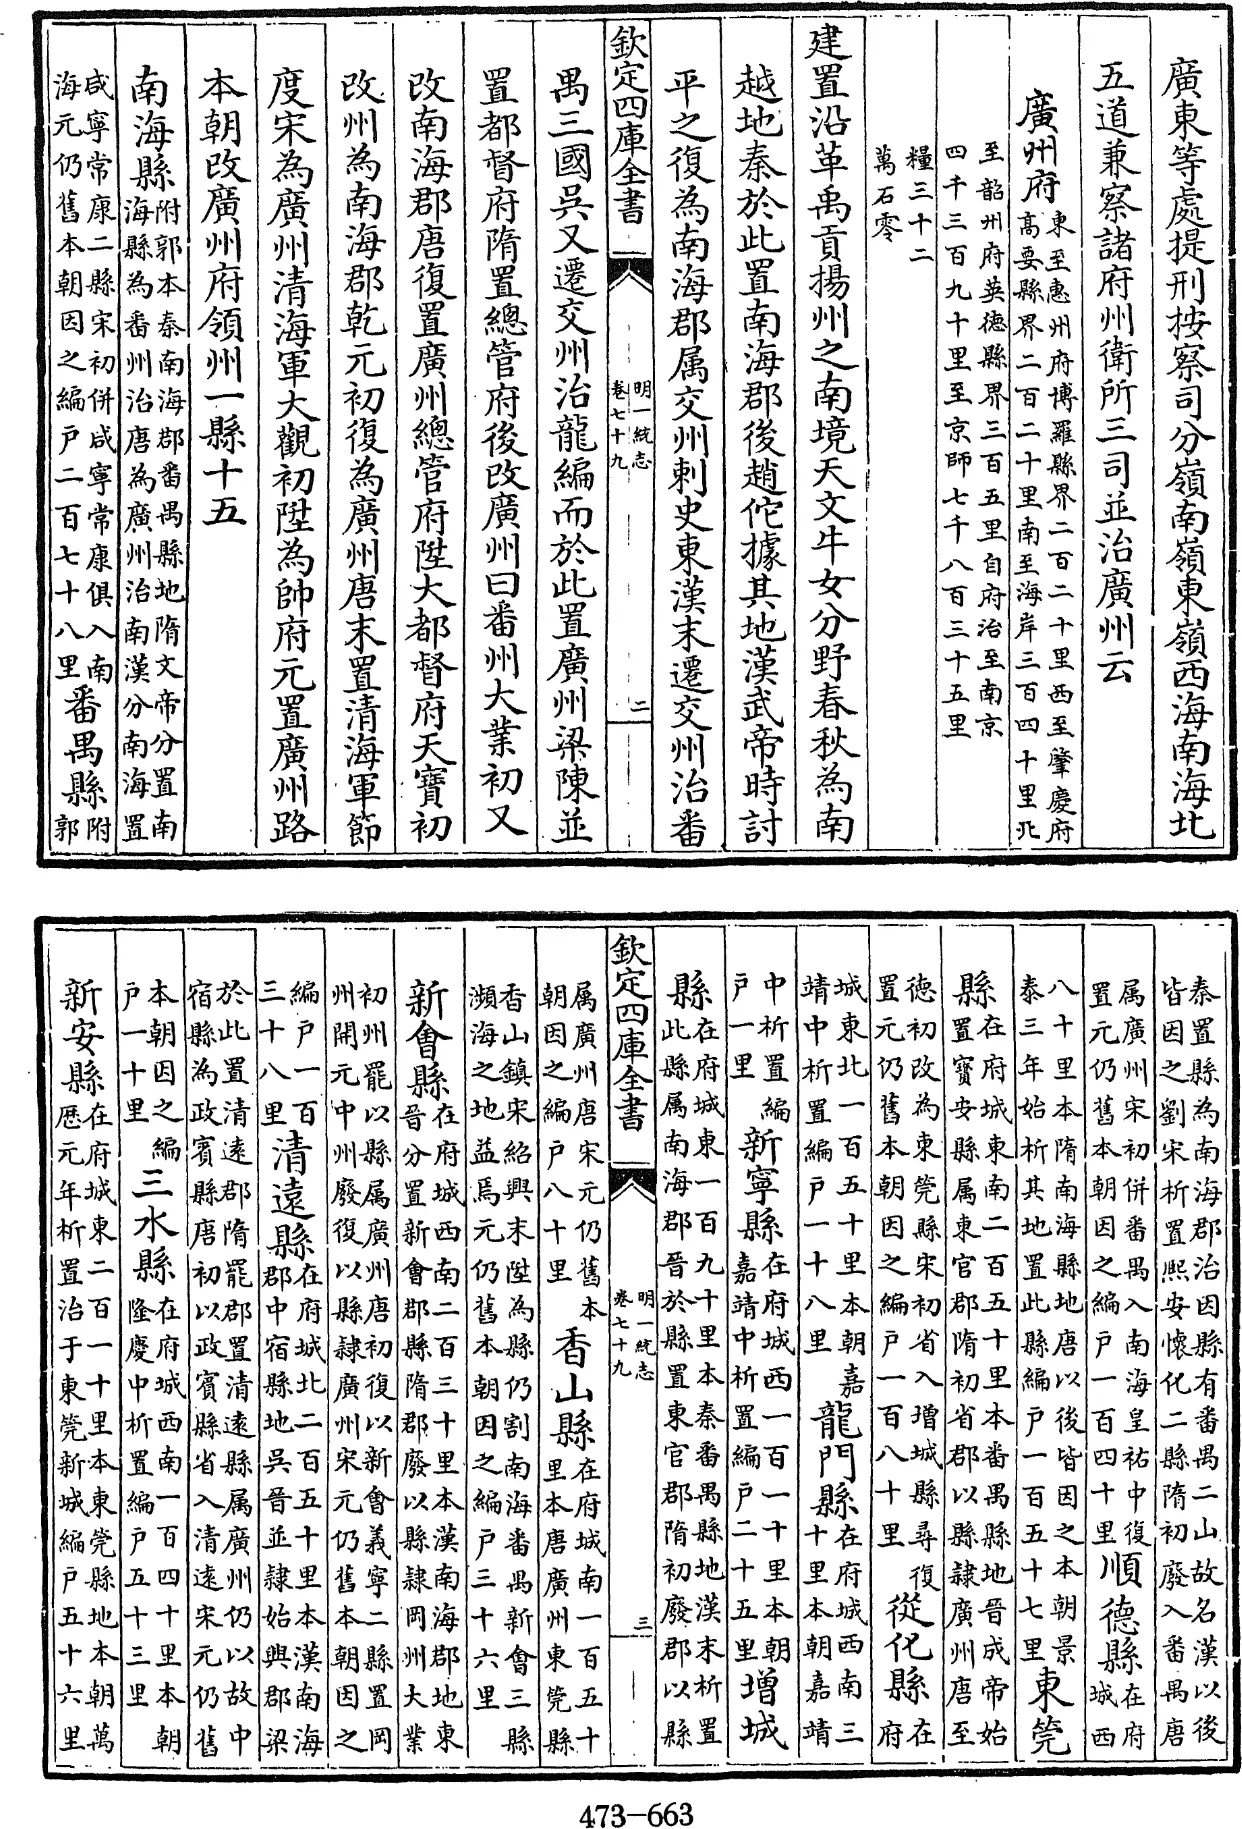 廣東等處提刑按察司分嶺南嶺東嶺西海南海北
五道兼察諸府州衛所三司並治廣州云
廣州府東至惠州府博羅縣界二百二十里西至肇慶府
高要縣界二百二十里南至海岸三百四十里北
至韶州府英德縣界三百五里自府治至南京
四千三百九十里至京師七千八百三十五里
糧三十二
萬石零
建置沿革禹貢揚州之南境天文牛女分野春秋為南
越地秦於此置南海郡後趙佗據其地漢武帝時討
平之復為南海郡属交州刺史東漢末遷交州治番
欽定四庫全書
明一統志
卷七十九
二
禺三國吳又遷交州治龍編而於此置廣州梁陳並
置都督府隋置總管府後改廣州曰番州大業初又
改南海郡唐復置廣州總管府陞大都督府天寶初
改州為南海郡乾元初復為廣州唐末置清海軍節
度宋為廣州清海軍大觀初陞為帥府元置廣州路
本朝改廣州府領州一縣十五
南海縣附郭本秦南海郡番禺縣地隋文帝分置南
海縣為番州治唐為廣州治南漢分南海置
咸寧常康二縣宋初併咸寧常康俱入南
海元仍舊本朝因之編戶二百七十八里番禺縣附
郭
泰置縣為南海郡治因縣有番禺二山故名漢以後
皆因之劉宋析置熙安懷化二縣隋初廢入番禺唐
属廣州宋初併番禺入南海皇祐中復
置元仍舊本朝因之編戶一百四十里順德縣在府
城西
八十里本隋南海縣地唐以後皆因之本朝景
泰三年始析其地置此縣編戶一百五十七里東莞
縣在府城東南二百五十里本番禺縣地晉成帝始
置寳安縣属東官郡隋初省郡以縣隸廣州唐至
德初改為東莞縣宋初省入增城縣尋復
置元仍舊本朝因之編戶一百八十里從化縣在
府
城東北一百五十里本朝嘉
靖中析置編戶一十八里龍門縣在府城西南三
十里本朝嘉靖
中析置編
戶一里新寧縣在府城西一百一十里本朝
嘉靖中析置編戶二十五里增城
縣在府城東一百九十里本秦番禺縣地漢末析置
此縣属南海郡晉於縣置東官郡隋初廢郡以縣
欽定四庫全書
明一統志
卷七十九
三
属廣州唐宋元仍舊本
朝因之編戶八十里香山縣在府城南一百五十
里本唐廣州東莞縣
香山鎮宋紹興末陞為縣仍割南海番禺新會三縣
瀕海之地益焉元仍舊本朝因之編戶三十六里
新會縣在府城西南二百三十里本漢南海郡地東
晉分置新會郡縣隋郡廢以縣隸岡州大業
初州罷以縣属廣州唐初復以新會義寧二縣置岡
州開元中州廢復以縣隸廣州宋元仍舊本朝因之
編戶一百
三十八里清遠縣在府城北二百五十里本漢南海
郡中宿縣地吳晉並隸始興郡梁
於此置清遠郡隋罷郡置清遠縣属廣州仍以故中
宿縣為政賓縣唐初以政賓縣省入清遠宋元仍舊
本朝因之編
戶一十里三水縣在府城西南一百四十里本朝
隆慶中析置編戶五十三里
新安縣在府城東二百一十里本東莞縣地本朝萬
歷元年析置治于東莞新城編戶五十六里
473-663